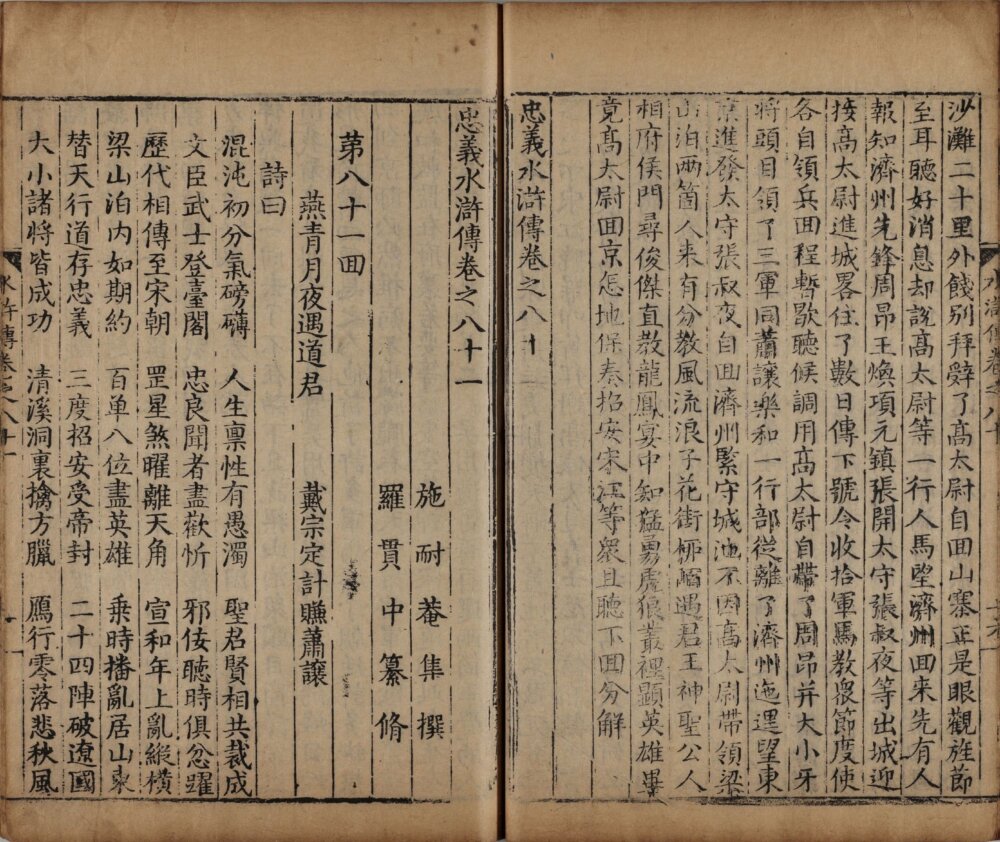 沙灘二十里外餞別拜辤了高太尉自回山寨正是眼觀旌節
至耳聽好消息却說高太尉等一行人馬望濟州回來先有人
報知濟州先鋒周昂王煥項元鎮張開太守張叔夜等出城迎
接高太尉進城畧住了數日傳下號令收拾軍馬教衆節度使
各自領兵回程暫歇聽候調用高太尉自帶了周昂并大小牙
將頭目領了三軍同蕭讓樂和一行部從離了濟州迤邐望東
京進發太守張叔夜自回濟州緊守城池不因高太尉帶領梁
山泊兩箇人来有分教風流浪子花街柳陌遇君王神聖公人
相府侯門尋俊傑直教龍鳳宴中知猛勇虎狼叢裡顯英雄畢
竟高太尉回京怎地保奏招安宋江等衆且聽下回分解
忠義水滸傳卷之八十
水滸傳卷之八十
忠義水滸傳卷之八十一
施耐菴集撰
羅貫中纂脩
苐八十一回
燕青月夜遇道君 戴宗定計賺蕭讓
詩曰
混沌初分氣磅礡 人生禀性有愚濁 聖君賢相共裁成
文臣武士登臺閣 忠良聞者盡歡忻 邪佞聽時俱忿躍
歷代相傳至宋朝 罡星煞曜離天角 宣和年上亂縱横
梁山泊内如期約 百单八位盡英雄 乗時播亂居山東
替天行道存忠義 三度招安受帝封 二十四陣破遼國
大小諸將皆成功 清溪洞裏擒方臘 鴈行零落悲秋風
水滸傳卷之八十一